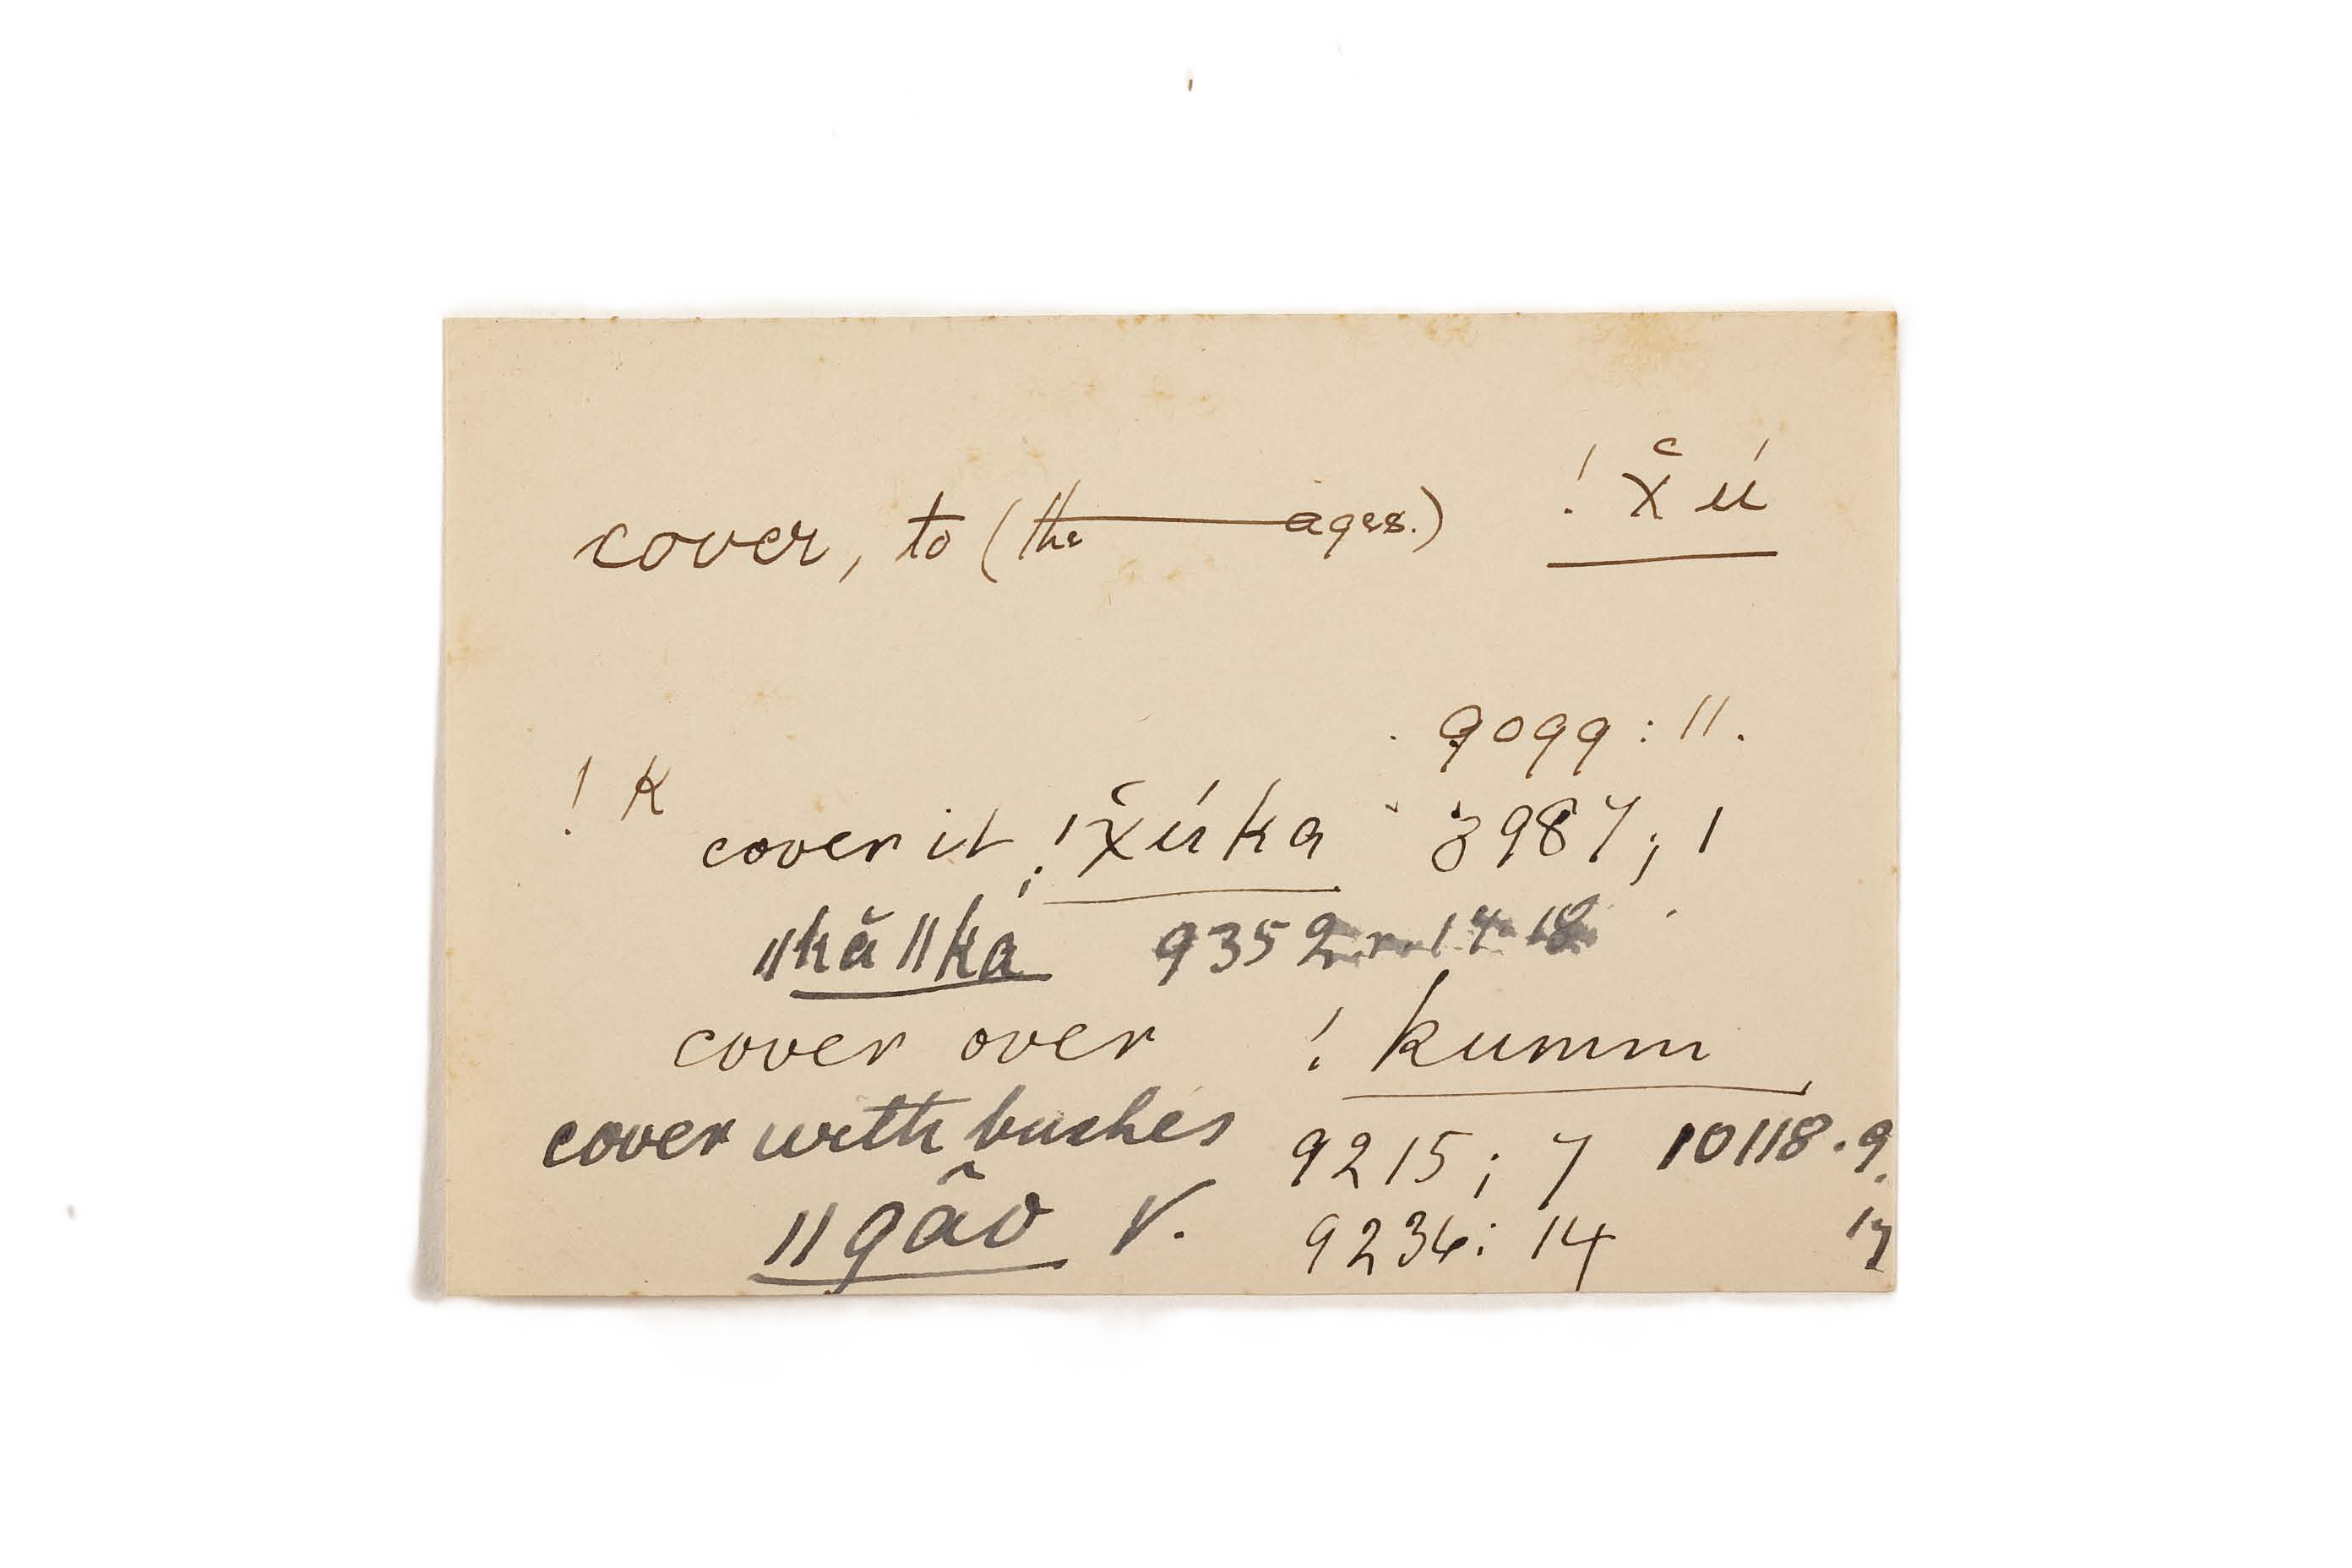 cover, to (the ——— ages.) !x̌ú
9099 : 11.
! K
cover it ; !x̌úka 8987 ; 1
ǁkăǁka 9352
cover over !kumm
cover with bushes 9215 ; 7 10118 . 9.
ǁgâo V. 9236 : 14 17